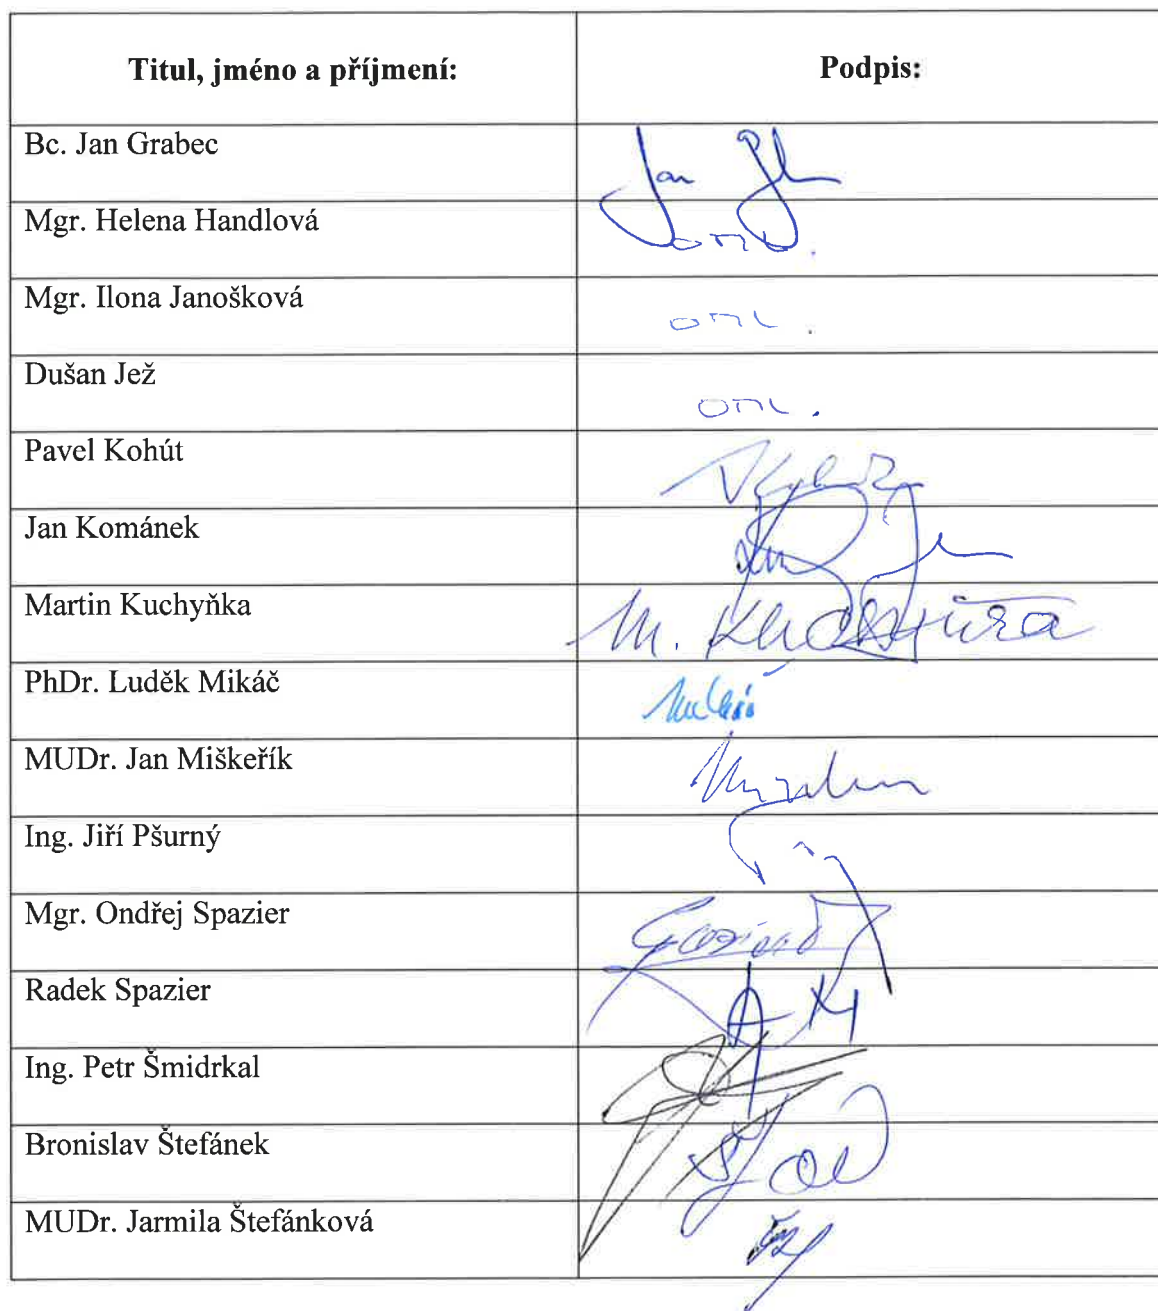 Titul, jméno a příjmení: Podpis:
Bc. Jan Grabec Jan
Mgr. Helena Handlová oml.
Mgr. Ilona Janošková oml.
Dušan Jež oml.
Pavel Kohút
Jan Kománek
Martin Kuchyňka M. Kuchyňka
PhDr. Luděk Mikáč
MUDr. Jan Miškeřík
Ing. Jiří Pšurný
Mgr. Ondřej Spazier
Radek Spazier
Ing. Petr Šmidrkal
Bronislav Štefánek
MUDr. Jarmila Štefánková